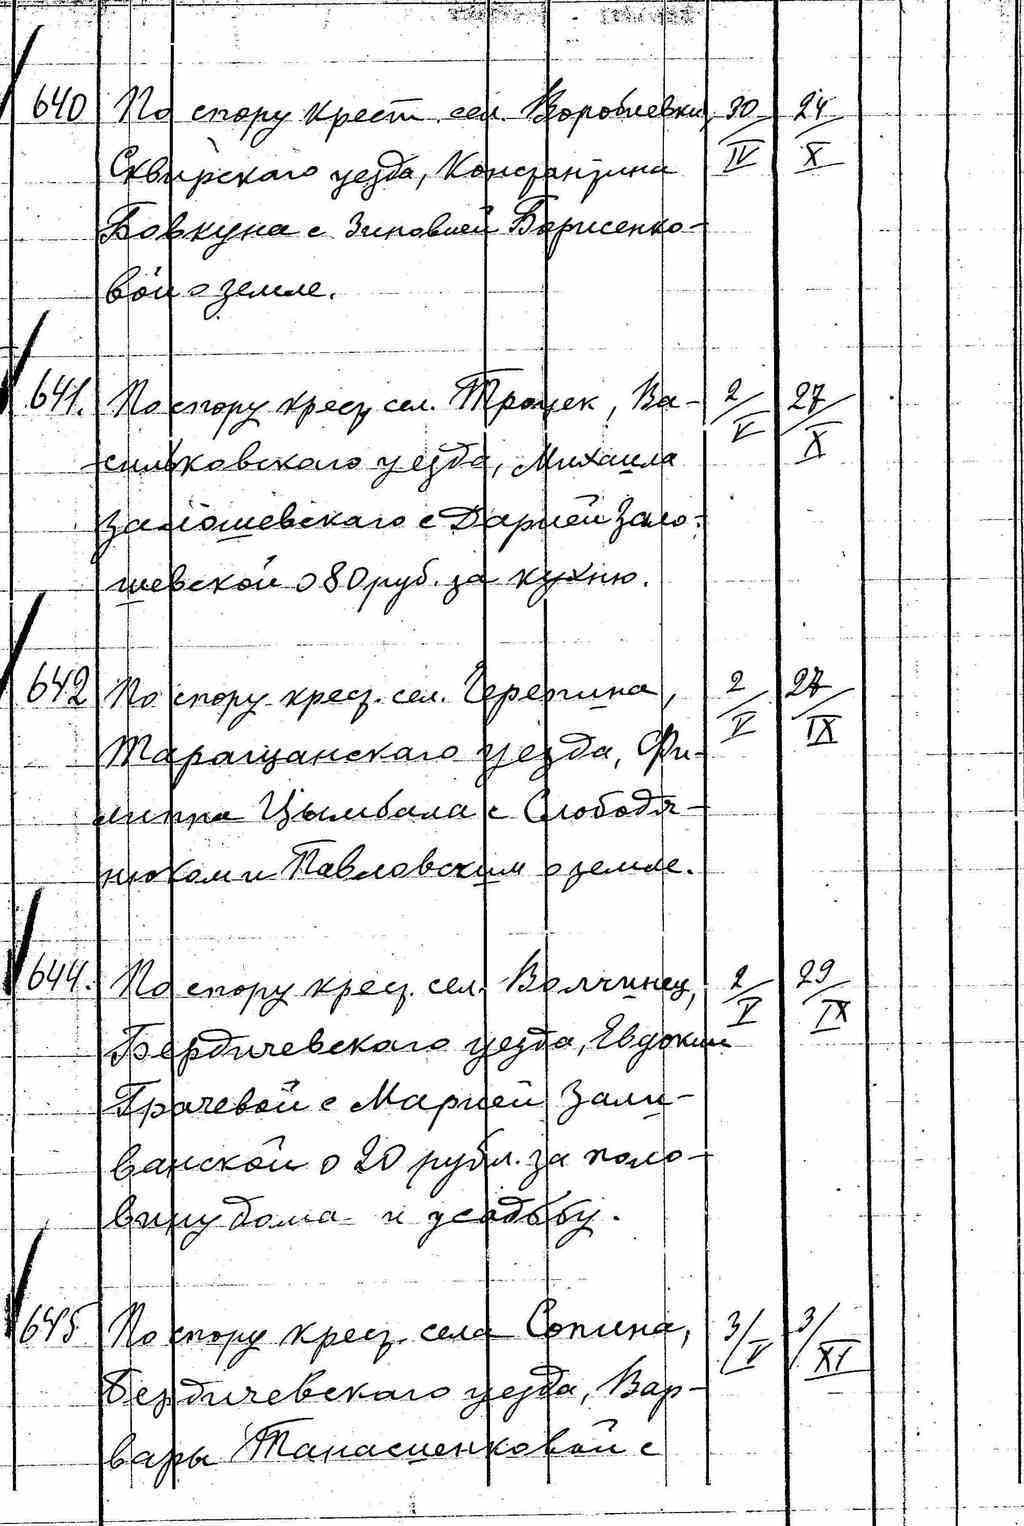 640 По спору крест. сел. Воробиевки, 30/IV 24/X
Сквирскаго уезда, Константина
Бовкуна с Зиновией Борисенко-
вой о земле.
641. По спору крест. сел. Троцек, Ва- 2/V 27/X
сильковскаго уезда, Михаила
Залошевскаго с Дарией Зало-
шевской о 80 руб. за кухню.
642 По спору крест. сел. Черепина, 2/V 27/IX
Таращанскаго уезда, Фи-
липпа Цымбала с Слободя-
нюком и Павловским о земле.
644. По спору крест. сел. Волчинец, 2/V 29/IX
Бердичевскаго уезда, Евдокии
Грачевой с Марией Зали-
ванской о 20 рубл. за поло-
вину дома и усадьбу.
645 По спору крест. села Сопина, 3/V 3/XI
Бердичевскаго уезда, Вар-
вары Танасиенковой с